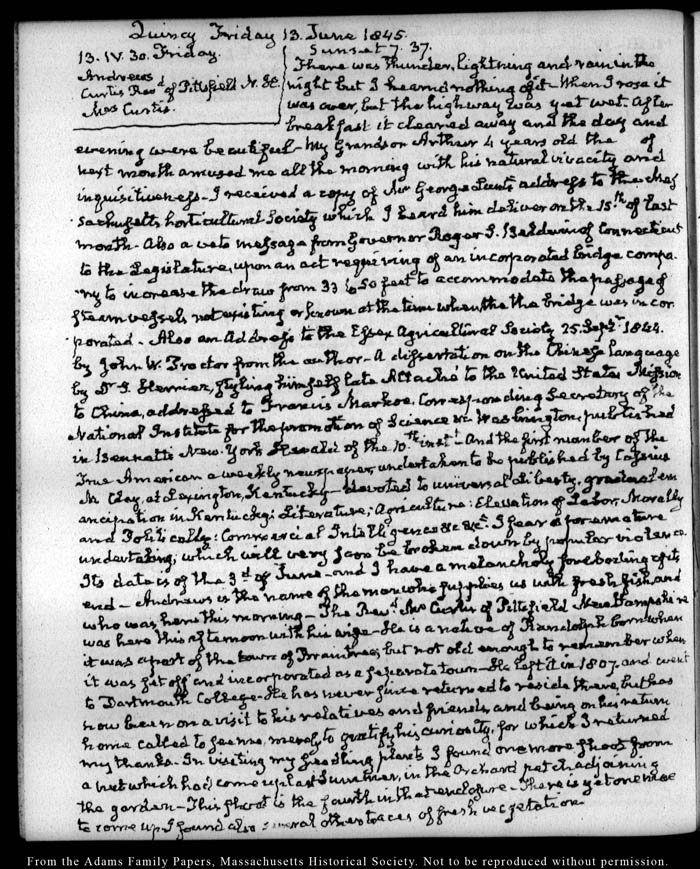 Quincy Friday 13. June 1845.
13. IV. 30. Friday.
Sunset 7. 37.
Andrews
Curtis Revd of Pittsfield N. H.
Mrs Curtis.
There was thunder, lightning and rain in the
night but I heard nothing of it - When I rose it
was over, but the highway was yet wet. After
breakfast it cleared away and the day and
evening were beautiful - My Grandson Arthur 4 years old the of
next month amused me all the morning with his natural vivacity and
inquisitiveness - I received a copy of Mr George Lunt's address to the Mas
sachusetts horticultural Society which I heard him deliver on the 15th of last
month - Also a veto message from Governor Roger S. Baldwin of Connecticut
to the Legislature, upon an act requiring of an incorporated bridge compa-
ny to increase the draw from 33 to 50 feet to accommodate the passage of
steam vessels not existing or known at the time when the the bridge was incor
porated - Also an Address to the Essex Agricultural Society 25. Septr 1844.
by John W. Proctor from the author - A dissertation on the Chinese language
by Dr styling himself late Attaché to the United States Mission
to China, addressed to Francis Markoe, Corresponding Secretary of the
National Institute for the promotion of Science &c Washington, published
in Bennett's New-York Herald of the 10th instt - And the first number of the
True American a weekly newspaper, undertaken to be published by Cassius
M Clay, at Lexington, Kentucky - devoted to universal liberty, gradual em
ancipation in Kentucky; Literature; Agriculture; Elevation of Labor, Morally
and Politically: Commercial Intelligence &c &c. I fear a premature
undertaking, which will very soon be broken down by popular violence.
Its date is of the 3d of June - and I have a melancholy foreboding of its
end - Andrews is the name of the man who supplies us with fresh fish, and
who was here this morning - The Revd Mr Curtis of Pittsfield New Hampshire
was here this afternoon with his wife - He is a native of Randolph born when
it was a part of the town of Braintree, but not old enough to remember when
it was set off and incorporated as a separate town - He left it in 1807. and went
to Dartmouth College - He has never since returned to reside there, but has
now been on a visit to his relatives and friends, and being on his return
home called to see me, merely to gratify his curiosity, for which I returned
my thanks. In visiting my seedling plants I found one more shoot from
a nut which had come up last Summer, in the Orchard patch adjoining
the garden - This shoot is the fourth in that enclosure - There is yet one more
to come up. I found also several other traces of fresh vegetation.
From the Adams Family Papers, Massachusetts Historical Society. Not to be reproduced without permission.